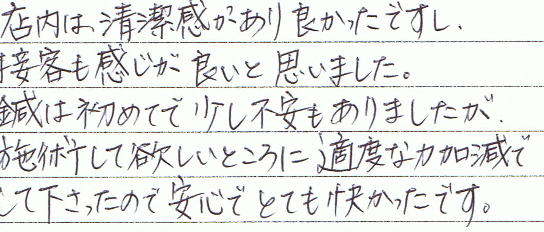 店内は、清潔感があり良かったですし、
接客も感じが良いと思いました。
鍼は初めてで少し不安もありましたが、
施術して欲しいところに適度な力加減で
して下さったので安心でとても快かったです。